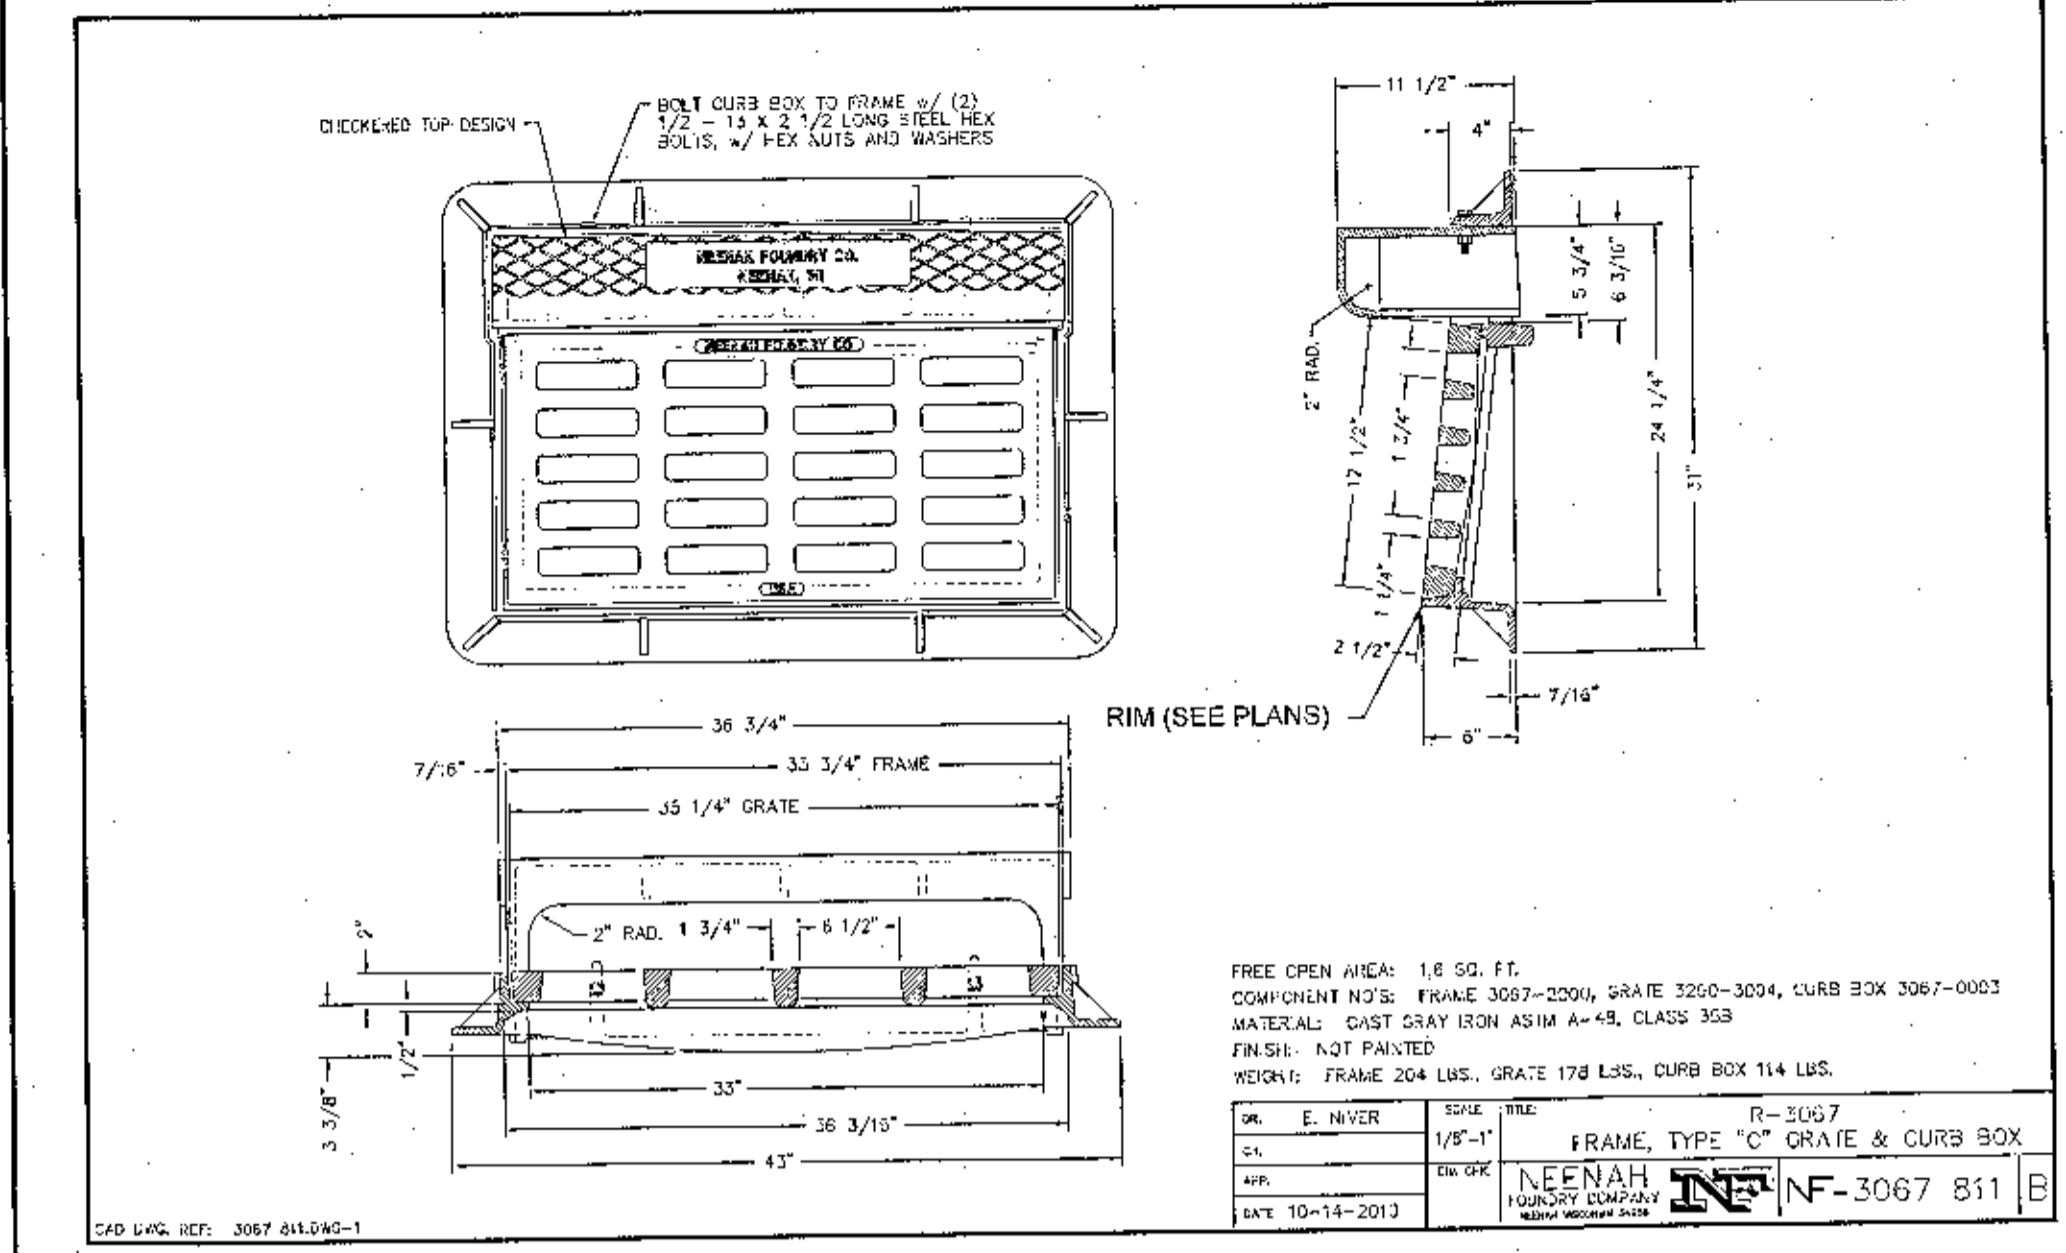 CHECKERED TOP DESIGN
BOLT CURB BOX TO FRAME w/ (2)
1/2 - 13 X 2 1/2 LONG STEEL HEX
BOLTS, w/ HEX NUTS AND WASHERS
NEENAH FOUNDRY CO.
NEENAH, WI
NEENAH FOUNDRY CO
USA
11 1/2"
4"
5 3/4"
6 3/16"
2" RAD.
17 1/2"
1 3/4"
24 1/4"
31"
1 1/4"
2 1/2"
7/16"
6"
RIM (SEE PLANS)
36 3/4"
7/16"
35 3/4" FRAME
35 1/4" GRATE
2" RAD.
1 3/4"
6 1/2"
2"
1/2"
3 3/8"
33"
36 3/16"
43"
FREE OPEN AREA: 1.6 SQ. FT.
COMPONENT NO'S: FRAME 3067-2000, GRATE 3260-3004, CURB BOX 3067-0003
MATERIAL: CAST GRAY IRON ASTM A-48, CLASS 35B
FINISH: NOT PAINTED
WEIGHT: FRAME 204 LBS., GRATE 178 LBS., CURB BOX 114 LBS.
DR. E. NIVER
CH.
APP.
DATE 10-14-2010
SCALE
1/8"-1"
DIM CHK
TITLE:
R-3067
FRAME, TYPE "C" GRATE & CURB BOX
NEENAH
FOUNDRY COMPANY
NEENAH WISCONSIN 54956
NF
NF-3067 811
B
CAD DWG. REF: 3067 811.DWG-1